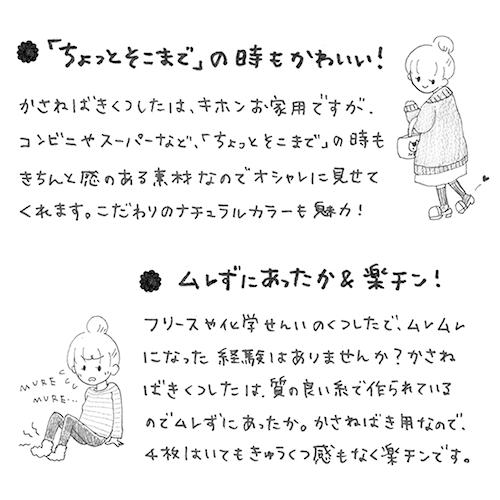 「ちょっとそこまで」の時もかわいい!
かさねばきくつしたは、キホンお家用ですが、
コンビニやスーパーなど、「ちょっとそこまで」の時も
きちんと感のある素材なのでオシャレに見せて
くれます。こだわりのナチュラルカラーも魅力!
ムレずにあったか&楽チン!
フリースや化学せんいのくつしたで、ムレムレ
になった経験はありませんか?かさね
ばきくつしたは、質の良い糸で作られている
のでムレずにあったか。かさねばき用なので、
4枚はいてもきゅうくつ感もなく楽チンです。
MURE
MURE...